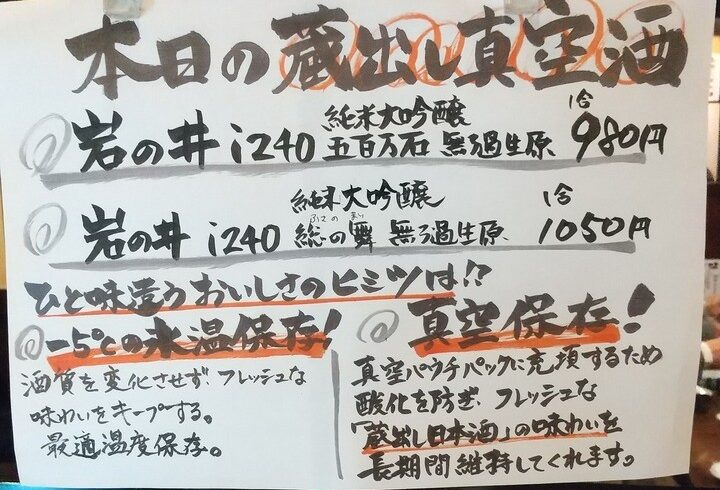 本日の蔵出し真空酒
岩の井 i240 純米大吟醸 五百万石 無ろ過生原 1合 980円
岩の井 i240 純米大吟醸 総の舞 ふさのまい 無ろ過生原 1合 1050円
ひと味違うおいしさのヒミツは!?
-5℃の氷温保存!
酒質を変化させず フレッシュな
味わいをキープする。
最適温度保存。
真空保存!
真空パウチパックに充填するため
酸化を防ぎ フレッシュな
「蔵出し日本酒」の味わいを
長期間維持してくれます。